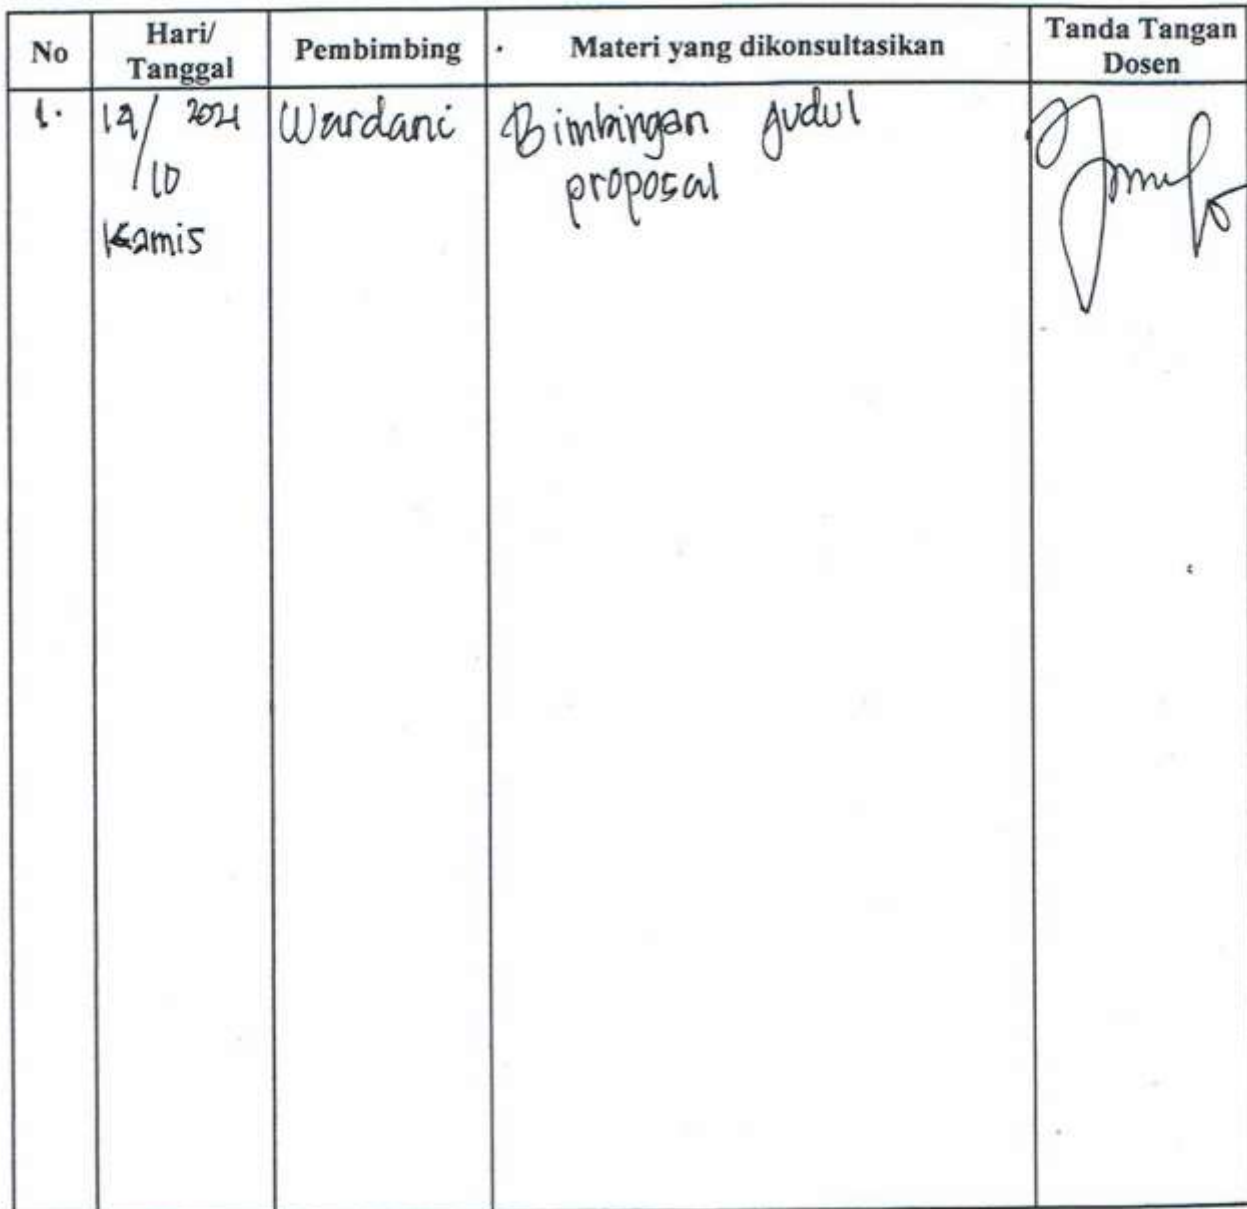 No Hari/ Tanggal Pembimbing Materi yang dikonsultasikan Tanda Tangan Dosen
1. 19/ 2021 Wardani Bimbingan Judul
10 proposal
Kamis